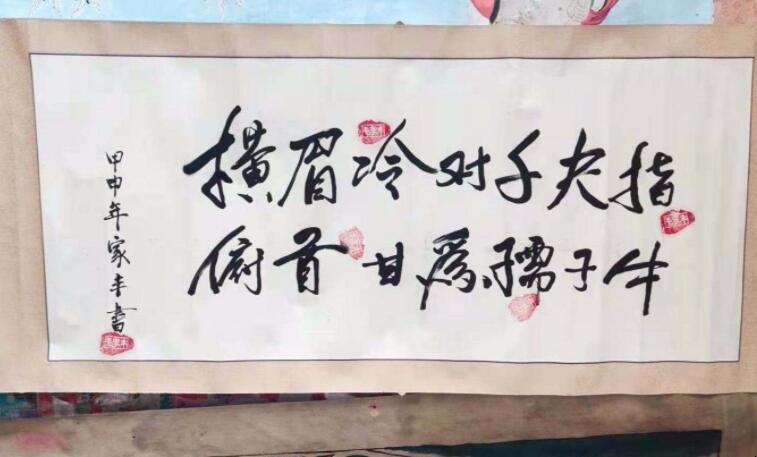 横眉冷对千夫指
俯首甘爲孺子牛
甲申年家丰書